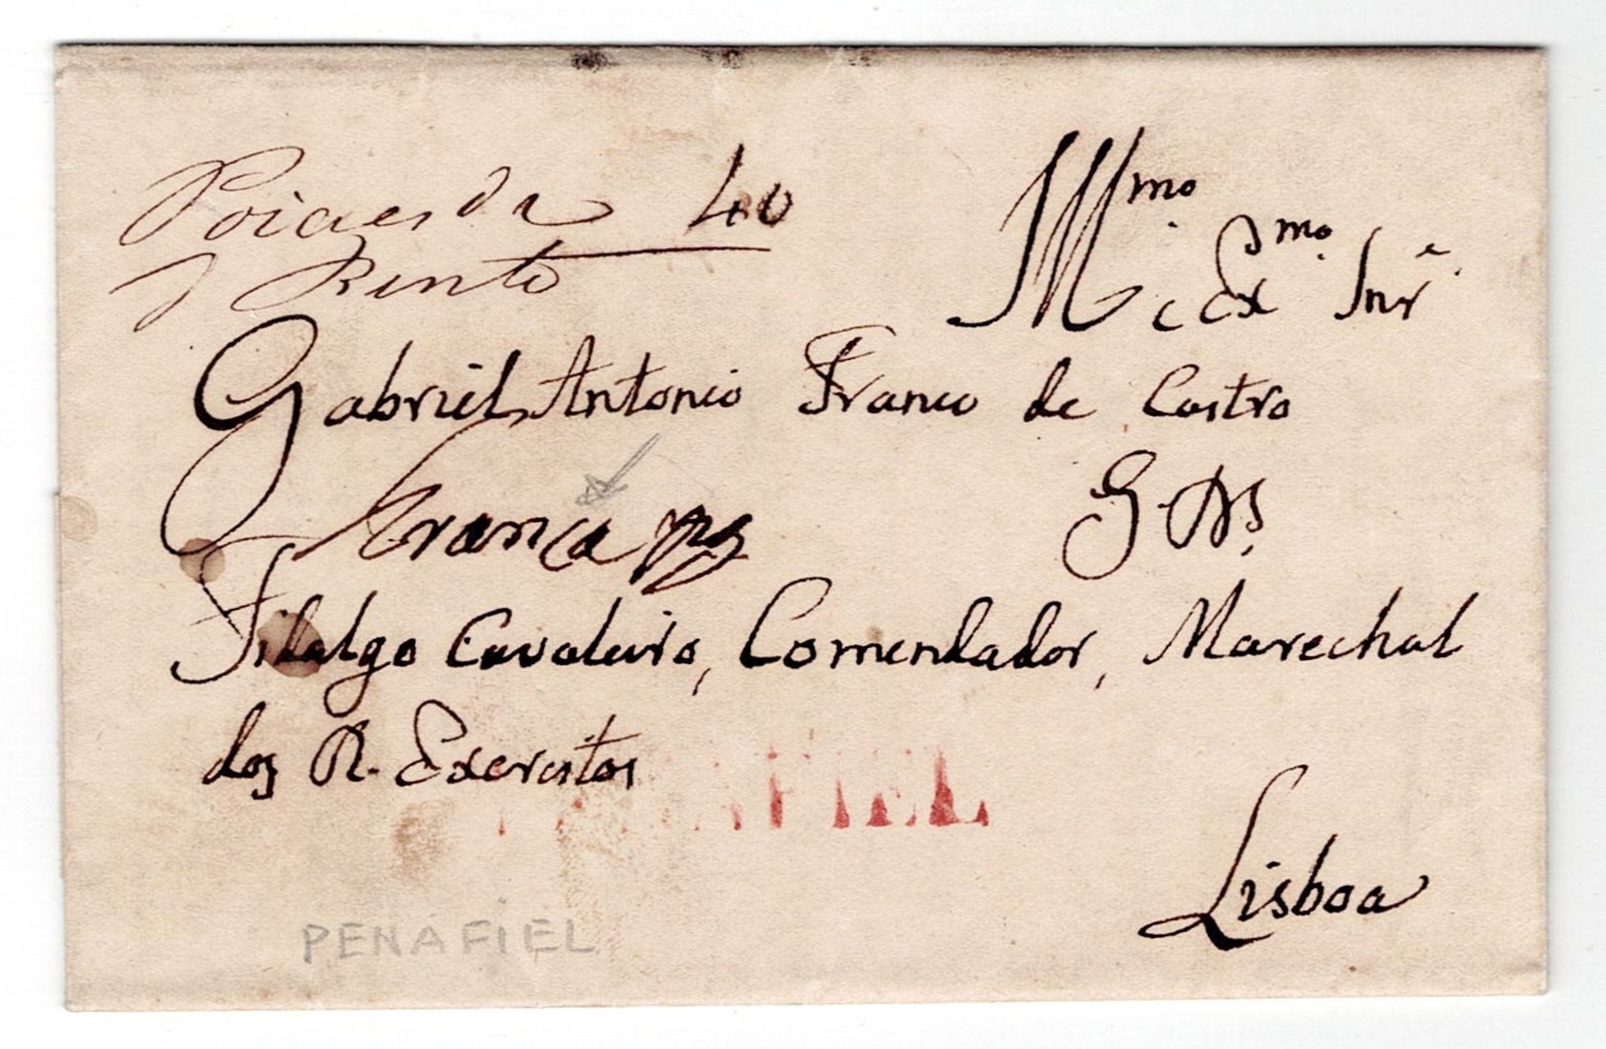 Poiaes da 40
Rento
Illmo
e Exmo Snr
Gabriel Antonio Franco de Castro
Franca
G. Ds.
Fidalgo Cavaleiro, Comendador, Marechal
dos R. Exercitos
AFIEL
Lisboa
PENAFIEL